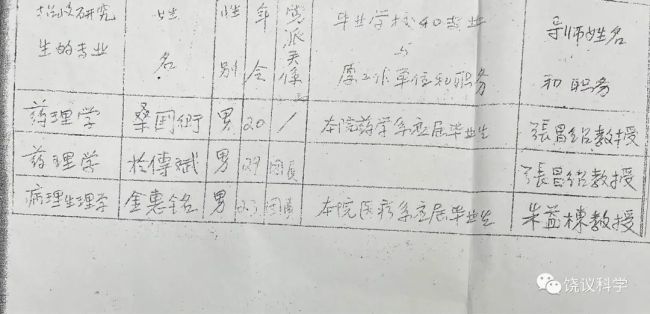 研究 姓 性 年 党 毕业学校和专业 导师姓名
生的专业 名 别 令 派关系 与 和职务
原工作单位和职务
药理学 桑国衛 男 20 / 本院药学系应届毕业生 張昌绍教授
药理学 男 29 团员 張昌绍教授
病理生理学 金惠铭 男 23 团员 本院医疗系应届毕业生 朱益棟教授
饶议科学